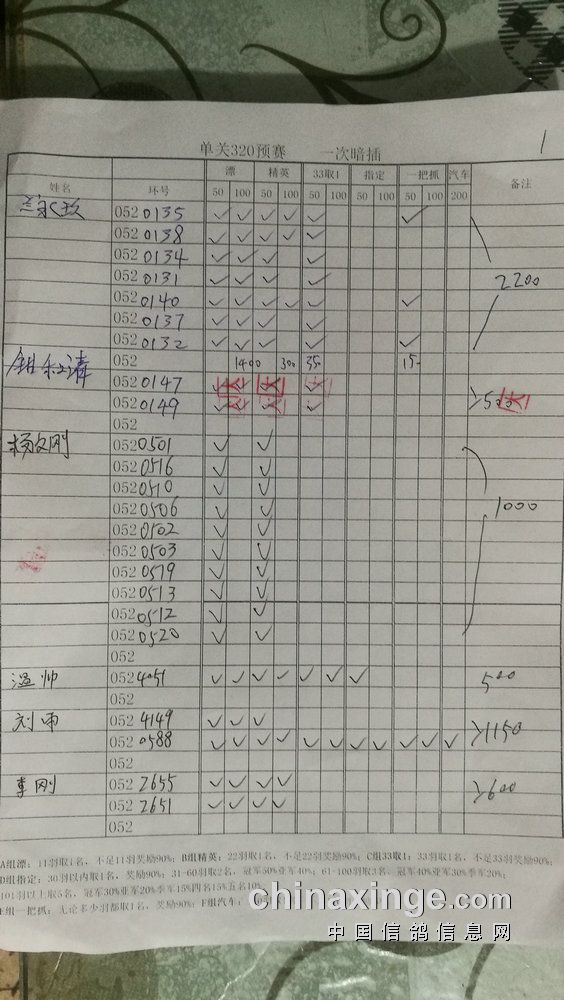 1
单关320预赛 一次暗插
姓名 环号 漂 精英 33取1 指定 一把抓 汽车 备注
50 100 50 100 50 100 50 100 50 100 200
052 0135 ✓ ✓ ✓ ✓ ✓ ✓
052 0138 ✓ ✓ ✓ ✓ ✓
052 0134 ✓ ✓ ✓ ✓
052 0131 ✓ ✓ ✓ ✓
052 0140 ✓ ✓ ✓ ✓ ✓ ✓
052 0137 ✓ ✓ ✓ ✓
052 0132 ✓ ✓ ✓ ✓ ✓
2200
052 1400 300 350 15-
052 0147
052 0149
052
杨文刚 052 0501 ✓ ✓
052 0516 ✓ ✓
052 0510 ✓ ✓
052 0506 ✓ ✓
052 0502 ✓ ✓
052 0503 ✓ ✓
052 0519 ✓ ✓
052 0513 ✓ ✓
052 0512 ✓ ✓
052 0520 ✓ ✓
1000
052
温帅 052 4051 ✓ ✓ ✓ ✓ ✓ ✓ ✓ 500
052
刘雨 052 4149 ✓ ✓ ✓
052 0588 ✓ ✓ ✓ ✓ ✓ ✓ ✓ ✓ ✓ ✓ ✓
1150
052
李刚 052 2655 ✓ ✓ ✓ ✓
052 2651 ✓ ✓ ✓ ✓
600
052
A组漂：11羽取1名，不足11羽奖励90%；B组精英：22羽取1名，不足22羽奖励90%；C组33取1：33羽取1名，不足33羽奖励90%；
D组指定：30羽以内取1名，奖励90%；31-60羽取2名，冠军50%亚军40%；61-100羽取3名，冠军40%亚军30%季军20%；
101羽以上取5名，冠军30%亚军20%季军15%四名15%五名10%
E组一把抓：无论多少羽都取1名，奖励90%；F组汽车：
chinaxinge.com
中国信鸽信息网